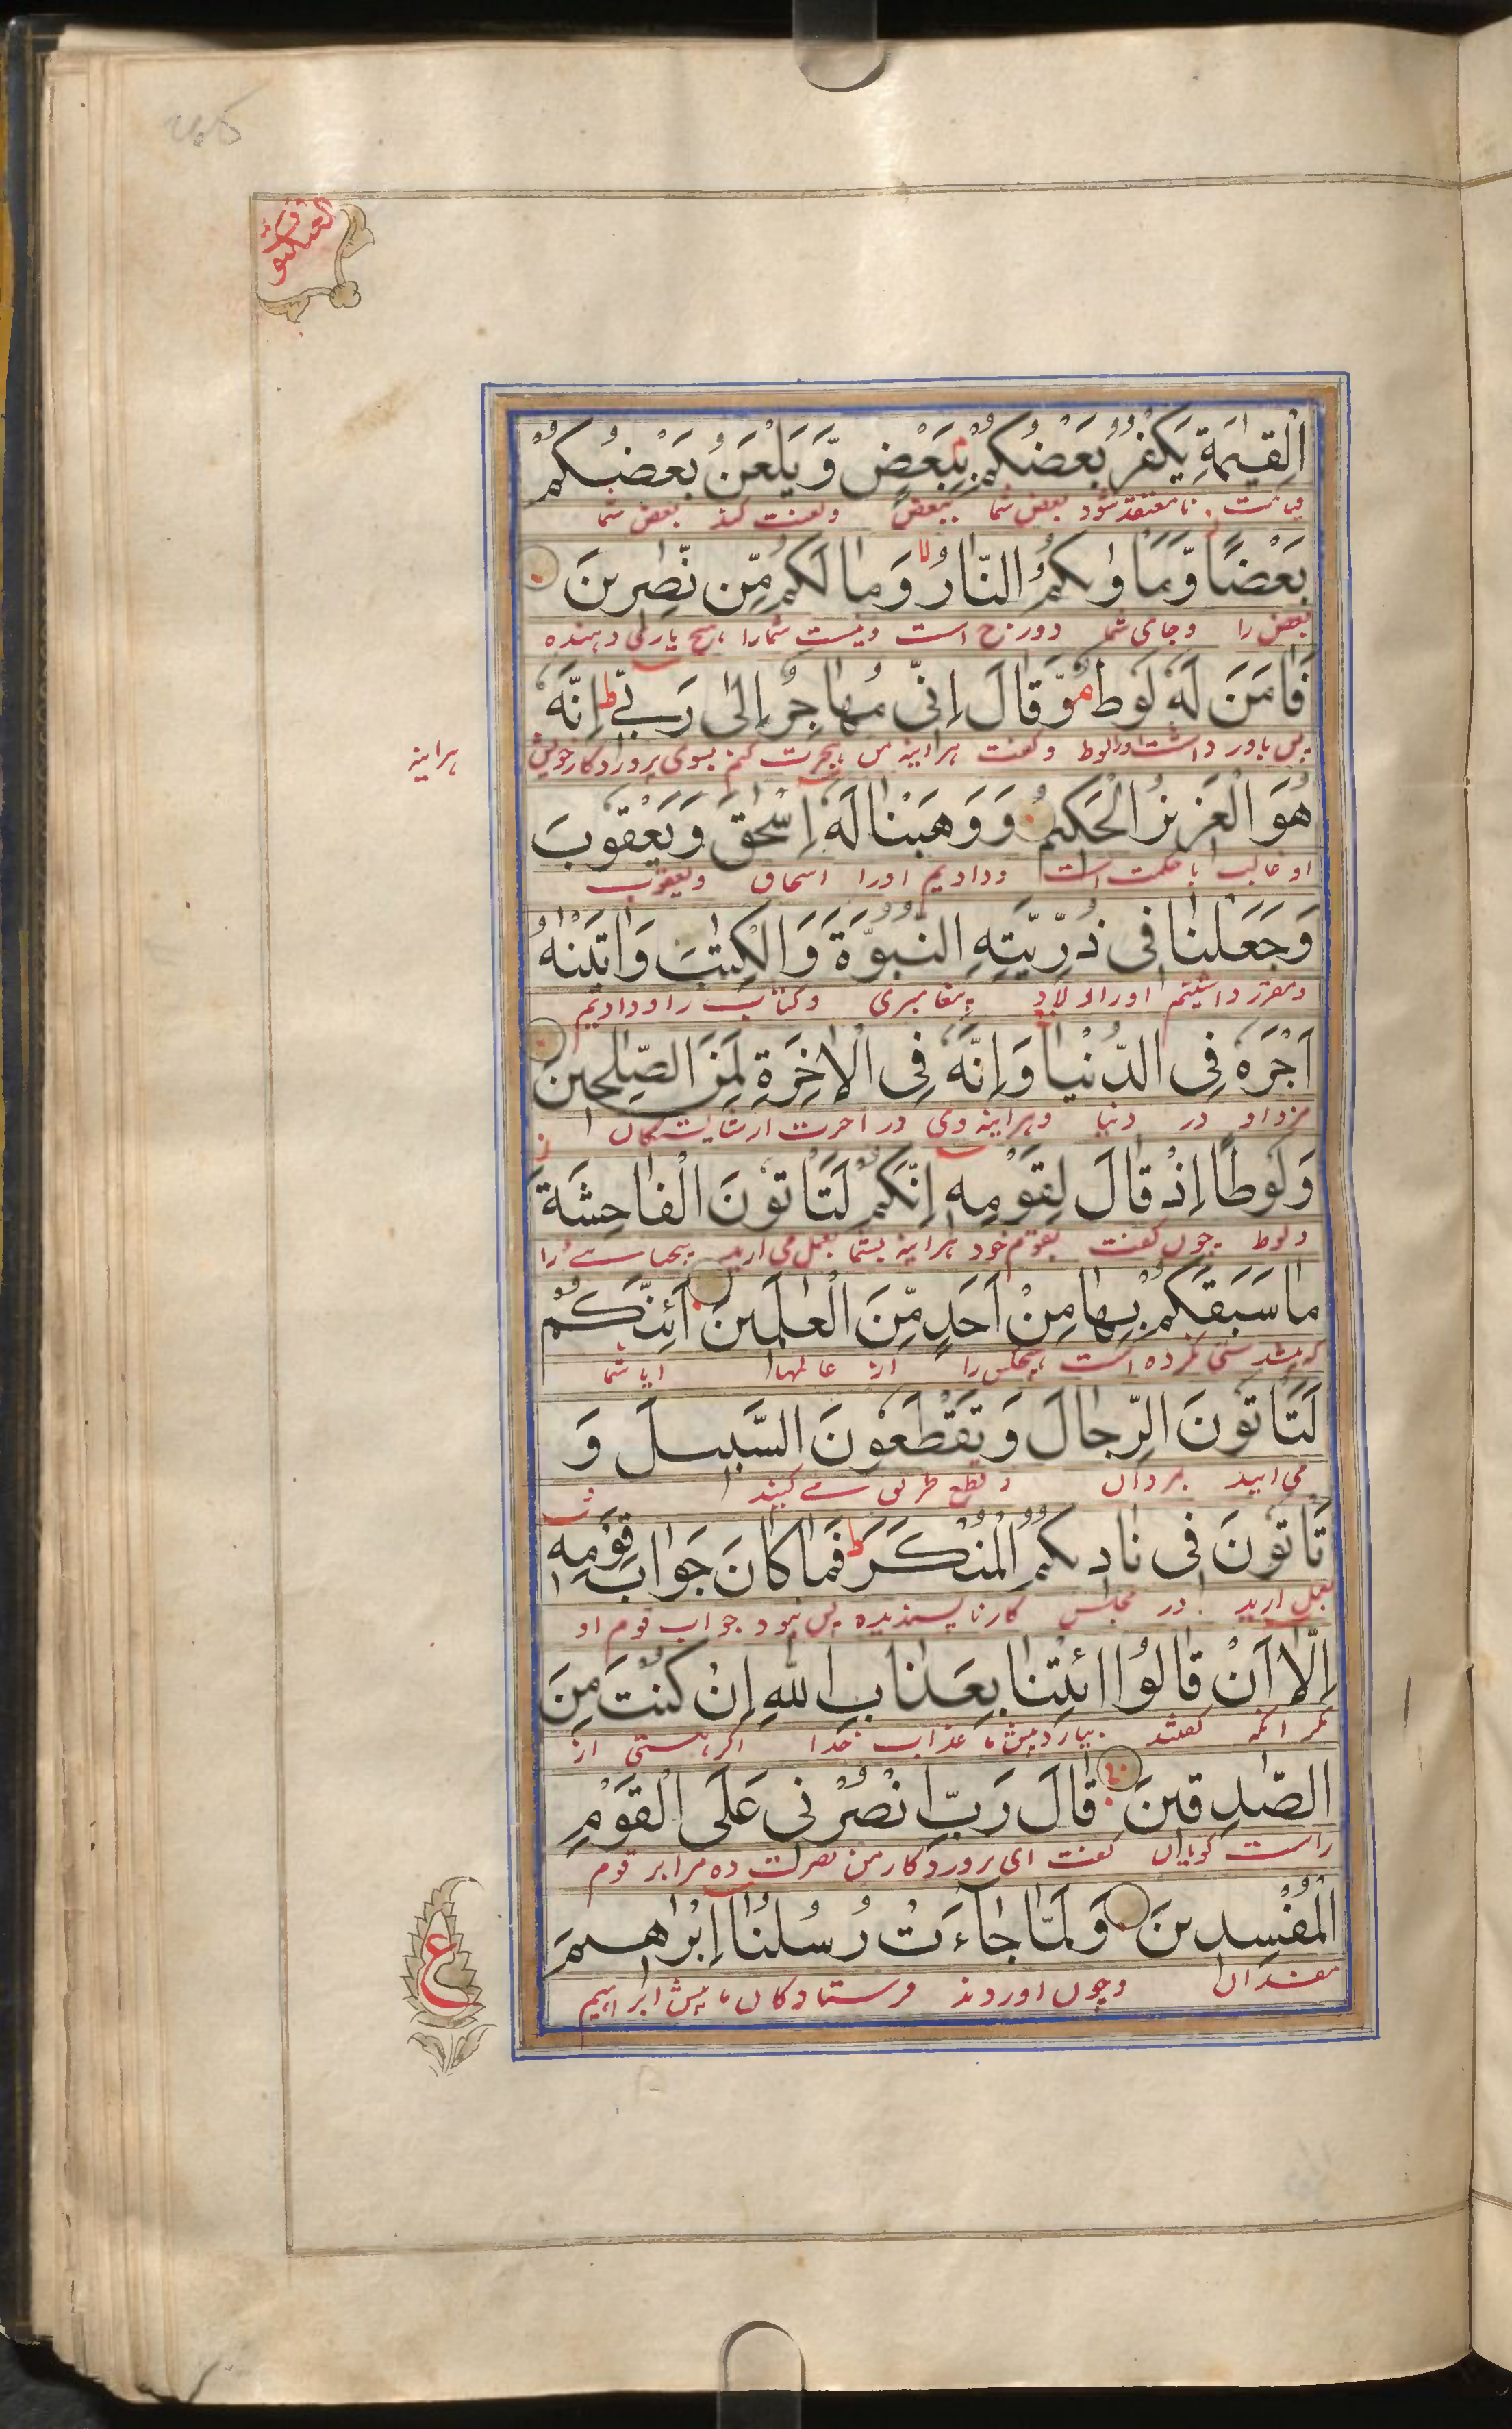 265
العنكبوت
الْقِيٰمَةِ يَكْفُرُ بَعْضُكُمْ بِبَعْضٍ وَّيَلْعَنُ بَعْضُكُمْ
قیامت نامعتقد شود بعض شما ببعض ولعنت کند بعض شما
بَعْضًا وَّمَاْوٰىكُمُ النَّارُ وَمَا لَكُمْ مِّنْ نّٰصِرِيْنَ
بعض را وجای شما دوزخ است ونیست شمارا هیچ یاری دهنده
فَاٰمَنَ لَهٗ لُوْطٌ وَّقَالَ اِنِّيْ مُهَاجِرٌ اِلٰى رَبِّيْ ط اِنَّهٗ
پس باور داشت اورا لوط وگفت هراینه من هجرت کنم بسوی پروردگار خویش
هراینه
هُوَ الْعَزِيْزُ الْحَكِيْمُ وَوَهَبْنَا لَهٗ اِسْحٰقَ وَيَعْقُوْبَ
او غالب با حکمت است ودادیم اورا اسحاق ویعقوب
وَجَعَلْنَا فِيْ ذُرِّيَّتِهِ النُّبُوَّةَ وَالْكِتٰبَ وَاٰتَيْنٰهُ
ومقرر داشتیم اورا اولاد پیغامبری وکتاب را ودادیم
اَجْرَهٗ فِي الدُّنْيَا وَاِنَّهٗ فِي الْاٰخِرَةِ لَمِنَ الصّٰلِحِيْنَ
مزد او در دنیا وهراینه وی در اخرت از شایستگان
وَلُوْطًا اِذْ قَالَ لِقَوْمِهٖ اِنَّكُمْ لَتَاْتُوْنَ الْفَاحِشَةَ
ولوط چون گفت بقوم خود هراینه شما بعمل می ارید را
مَا سَبَقَكُمْ بِهَا مِنْ اَحَدٍ مِّنَ الْعٰلَمِيْنَ اَئِنَّكُمْ
نکرده است هیچکس را از عالمها ایا شما
لَتَاْتُوْنَ الرِّجَالَ وَتَقْطَعُوْنَ السَّبِيْلَ وَ
می ایید بمردان وقطع طریق می کنید
تَاْتُوْنَ فِيْ نَادِيْكُمُ الْمُنْكَرَ ط فَمَا كَانَ جَوَابَ قَوْمِهٖ
بعمل ارید در مجلس کار ناپسندیده پس نبود جواب قوم او
اِلَّا اَنْ قَالُوا ائْتِنَا بِعَذَابِ اللّٰهِ اِنْ كُنْتَ مِنَ
مگر انکه گفتند بیار پیش ما عذاب خدا اگر هستی از
الصّٰدِقِيْنَ قَالَ رَبِّ انْصُرْنِيْ عَلَى الْقَوْمِ
راست گویان گفت ای پروردگار من نصرت ده مرا بر قوم
الْمُفْسِدِيْنَ وَلَمَّا جَآءَتْ رُسُلُنَا اِبْرٰهِيْمَ
مفسدان وچون اوردند فرستادگان ما پیش ابراهیم
ع